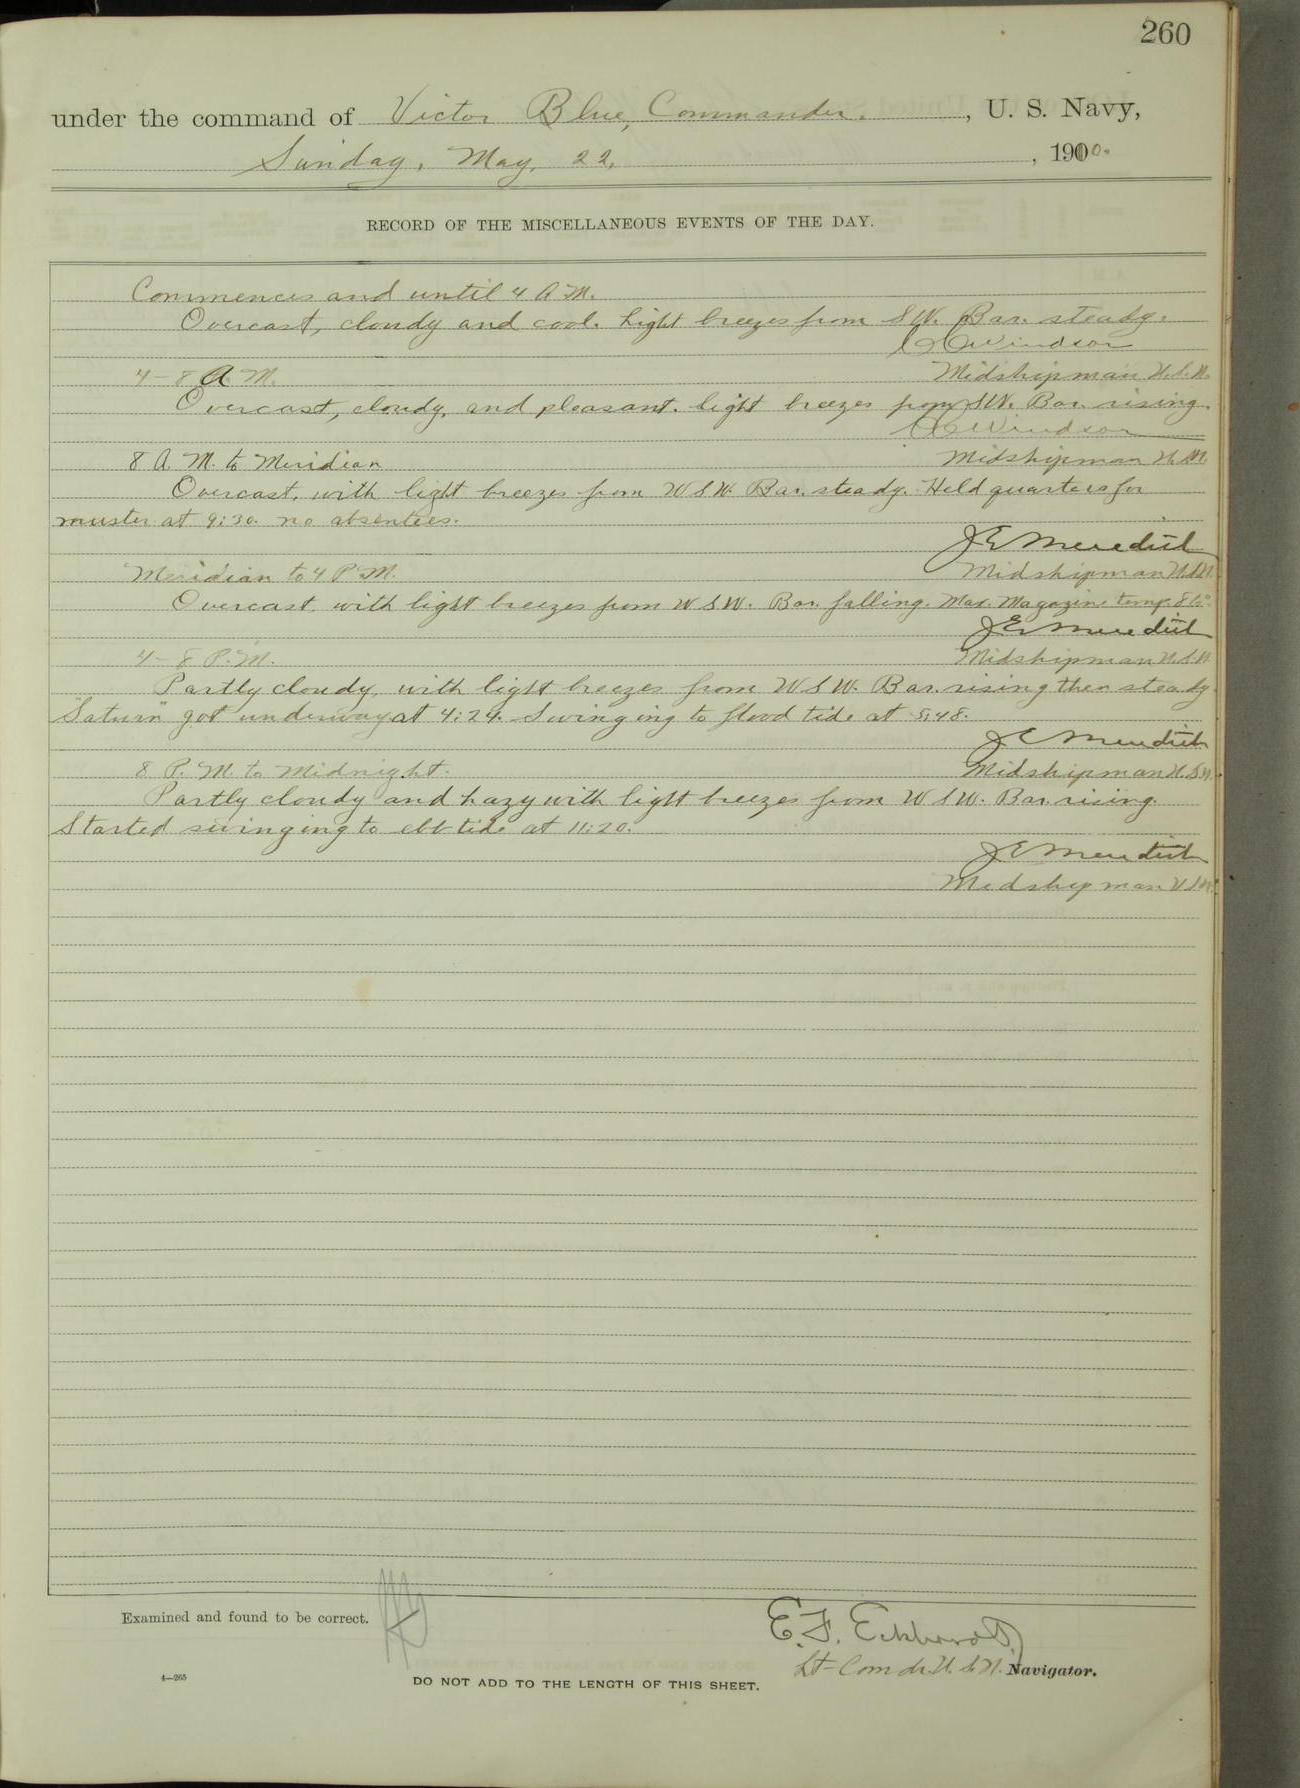 260
under the command of Victor Blue, Commander. , U. S. Navy,
Sunday, May, 22, , 1910.
RECORD OF THE MISCELLANEOUS EVENTS OF THE DAY.
Commences and until 4 A.M.
Overcast, cloudy and cool. Light breezes from SW. Bar. steady.
Windsor
4-8 A.M. Midshipman U.S.N.
Overcast, cloudy, and pleasant. light breezes from SW. Bar. rising.
Windsor
8 A.M. to Meridian Midshipman U.S.N.
Overcast, with light breezes from WSW. Bar. steady. Held quarters for
muster at 9:30. no absentees.
J E Meredith
Meridian to 4 P.M. Midshipman U.S.N.
Overcast with light breezes from WSW. Bar. falling. Max. Magazine temp.
J E Meredith
4-8 P.M. Midshipman U.S.N.
Partly cloudy, with light breezes from WSW. Bar. rising then steady.
"Saturn" got underway at 4:24. Swinging to flood tide at 5:48.
J E Meredith
8 P.M. to Midnight. Midshipman U.S.N.
Partly cloudy and hazy with light breezes from WSW. Bar. rising.
Started swinging to ebb tide at 11:20.
J E Meredith
Midshipman U.S.N.
Examined and found to be correct.
E. F. Eckhardt
Lt-Comdr. U.S.N. Navigator.
4—265
DO NOT ADD TO THE LENGTH OF THIS SHEET.